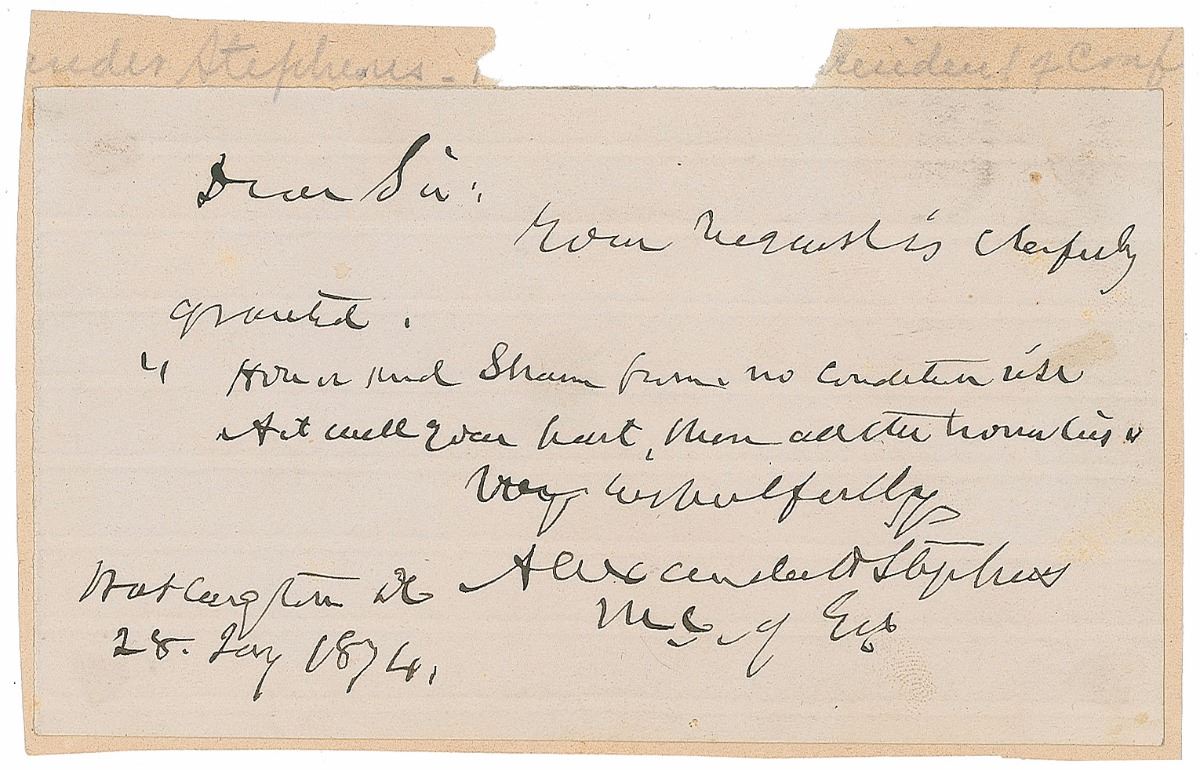 ander Stephens - President of Conf
Dear Sir:
Your request is cherfully
granted.
" Honor and Shame from no condition rise
Act well your part, there all the honor lies "
Very respectfully
Alexander H Stephens
M. C. of Ga
Washington DC
28. Jay 1874.